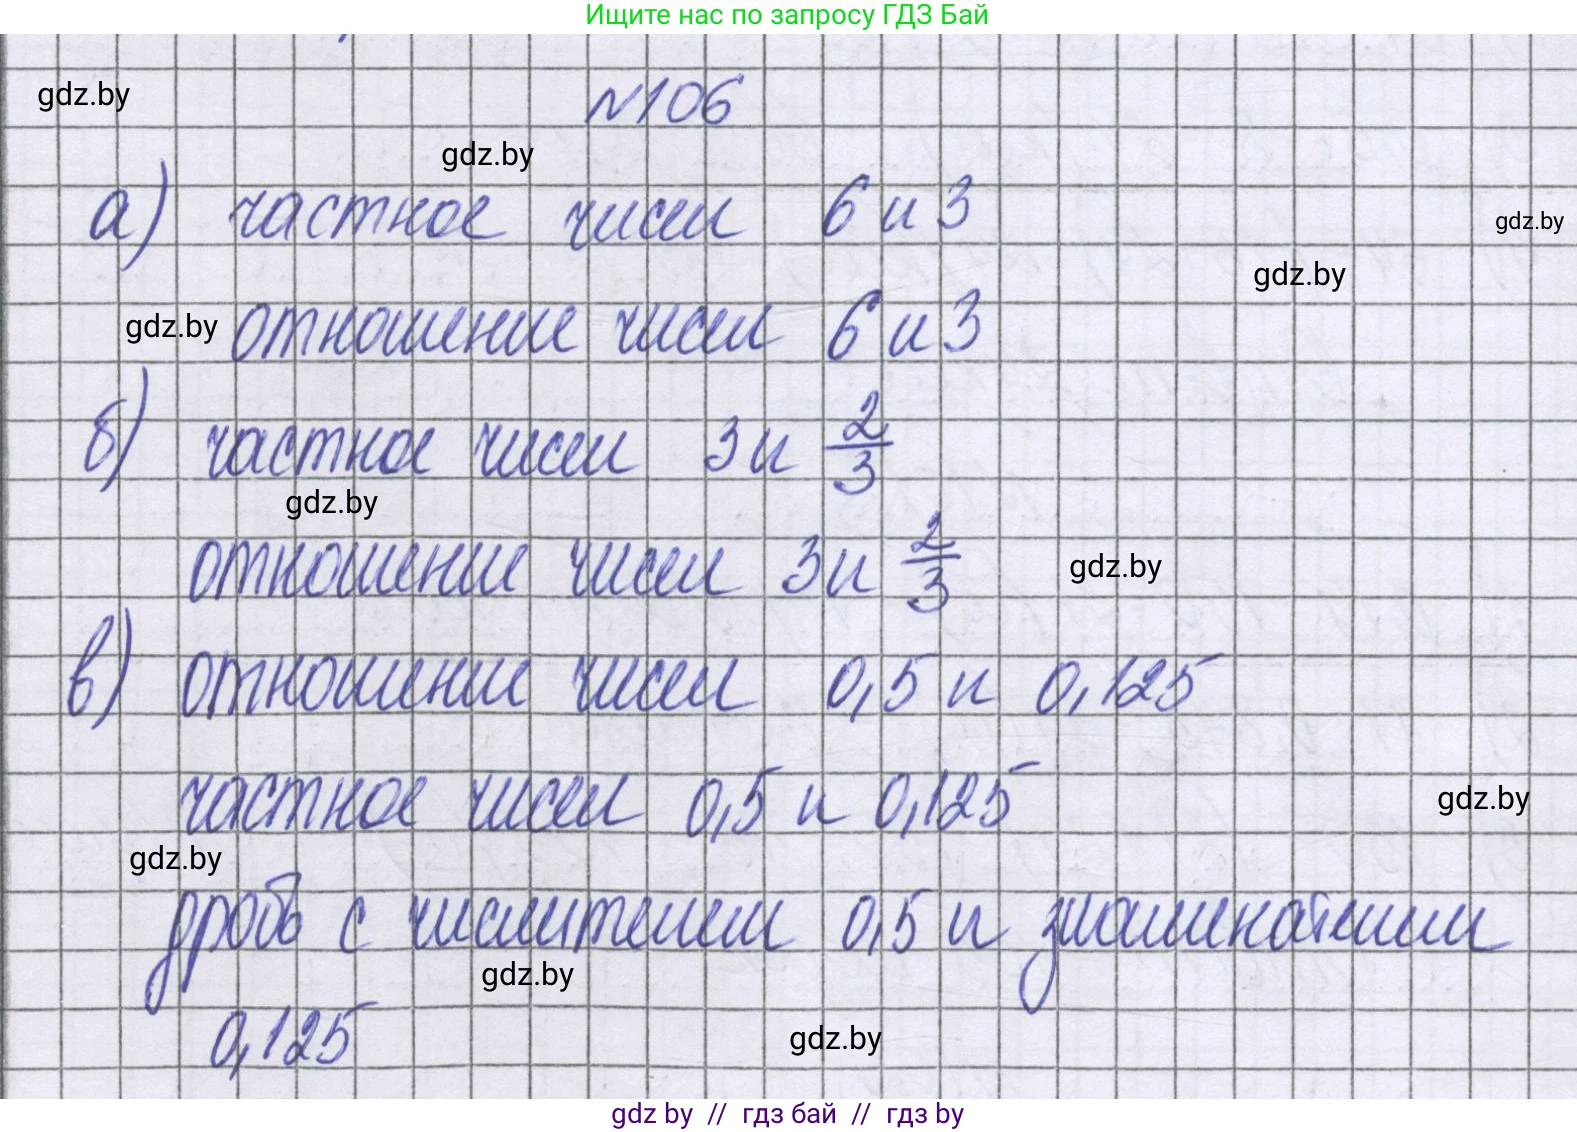 Ищите нас по запросу ГДЗ Бай
№106
gdz.by
gdz.by
а) частное чисел 6 и 3
gdz.by
gdz.by
gdz.by
отношение чисел 6 и 3
б) частное чисел 3 и 2/3
gdz.by
отношение чисел 3 и 2/3
gdz.by
в) отношение чисел 0,5 и 0,125
частное чисел 0,5 и 0,125
gdz.by
gdz.by
дробь с числителем 0,5 и знаменателем
gdz.by
0,125
gdz.by
gdz by // гдз бай // гдз by